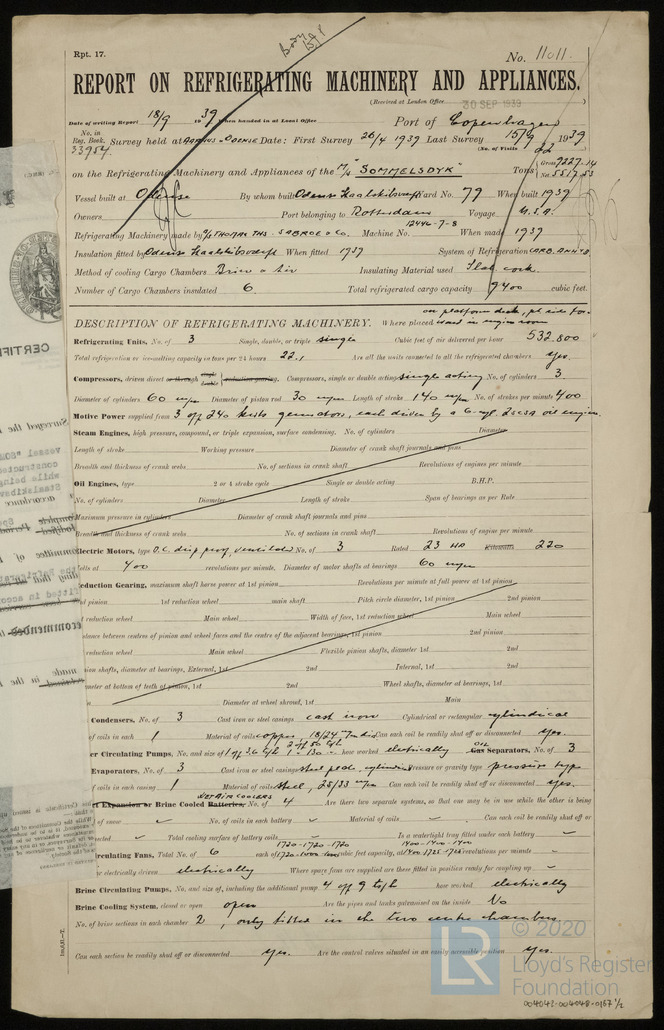 Rpt. 17.
No. 11011.
REPORT ON REFRIGERATING MACHINERY AND APPLIANCES.
(Received at London Office 30 SEP 1939)
Date of writing Report 18/9 1939 When handed in at Local Office Port of Copenhagen
No. in Reg. Book. Survey held at Aarhus - Odense Date: First Survey 26/4 1939 Last Survey 15/9 1939
33954 (No. of Visits 22)
on the Refrigerating Machinery and Appliances of the M/S "SOMMELSDYK" Tons Gross 9227.14 Net 5517.53
Vessel built at Odense By whom built Odense Staalskibsværft Yard No. 79 When built 1939
Owners Port belonging to Rotterdam Voyage U.S.A.
Refrigerating Machinery made by THOMAS THS. SABROE & CO. Machine No. 12446-7-8 When made 1939
Insulation fitted by Odense Staalskibsværft When fitted 1939 System of Refrigeration CARB. ANHYD.
Method of cooling Cargo Chambers Brine & Air Insulating Material used Slab cork.
Number of Cargo Chambers insulated 6. Total refrigerated cargo capacity 9400 cubic feet.
on platform deck, pt side for-
DESCRIPTION OF REFRIGERATING MACHINERY. Where placed ward in engine room
Refrigerating Units, No. of 3 Single, double, or triple single Cubic feet of air delivered per hour 532.800
Total refrigeration or ice-melting capacity in tons per 24 hours 22.1 Are all the units connected to all the refrigerated chambers yes.
Compressors, driven direct or through single double reduction gearing. Compressors, single or double acting single acting No. of cylinders 3
Diameter of cylinders 60 mm Diameter of piston rod 30 mm Length of stroke 140 mm No. of strokes per minute 400
Motive Power supplied from 3 off 240 generators, each driven by a 6-cyl. 2SCSA oil engine.
Steam Engines, high pressure, compound, or triple expansion, surface condensing. No. of cylinders Diameter
Length of stroke Working pressure Diameter of crank shaft journals and pins
Breadth and thickness of crank webs No. of sections in crank shaft Revolutions of engines per minute
Oil Engines, type 2 or 4 stroke cycle Single or double acting B.H.P.
No. of cylinders Diameter Length of stroke Span of bearings as per Rule
Maximum pressure in cylinders Diameter of crank shaft journals and pins
Breadth and thickness of crank webs No. of sections in crank shaft Revolutions of engine per minute
Electric Motors, type D.C. drip proof, ventilated No. of 3 Rated 23 HP Kilowatts 220
Volts at 400 revolutions per minute, Diameter of motor shafts at bearings 60 mm
Reduction Gearing, maximum shaft horse power at 1st pinion Revolutions per minute at full power at 1st pinion
2nd pinion 1st reduction wheel main shaft Pitch circle diameter, 1st pinion 2nd pinion
reduction wheel Main wheel Width of face, 1st reduction wheel Main wheel
distance between centres of pinion and wheel faces and the centre of the adjacent bearings, 1st pinion 2nd pinion
reduction wheel Main wheel Flexible pinion shafts, diameter 1st 2nd
pinion shafts, diameter at bearings, External, 1st 2nd Internal, 1st 2nd
diameter at bottom of teeth of pinion, 1st 2nd Wheel shafts, diameter at bearings, 1st
Diameter at wheel shroud, 1st Main
Condensers, No. of 3 Cast iron or steel casings cast iron Cylindrical or rectangular cylindrical
of coils in each 1 Material of coils copper, 18/24 Can each coil be readily shut off or disconnected yes.
Circulating Pumps, No. and size of how worked electrically Gas OIL Separators, No. of 3
Evaporators, No. of 3 Cast iron or steel casings steel Pressure or gravity type pressure type
of coils in each casing 1 Material of coils steel, 25/33 mm Can each coil be readily shut off or disconnected yes.
Direct Expansion or Brine Cooled Batteries, No. of 4 Are there two separate systems, so that one may be in use while the other is being
No. of coils in each battery Material of coils Can each coil be readily shut off or
Total cooling surface of battery coils Is a watertight tray fitted under each battery
Circulating Fans, Total No. of 6 each of cubic feet capacity, at revolutions per minute
electrically driven electrically Where spare fans are supplied are these fitted in position ready for coupling up
Brine Circulating Pumps, No. and size of, including the additional pump 4 off 9 t/h how worked electrically
Brine Cooling System, closed or open open Are the pipes and tanks galvanised on the inside No
No. of brine sections in each chamber 2, only fitted in the two centre chambers
Can each section be readily shut off or disconnected yes. Are the control valves situated in an easily accessible position yes.
© 2020
LR
Lloyd's Register
Foundation
004043-004048-0167 1/2